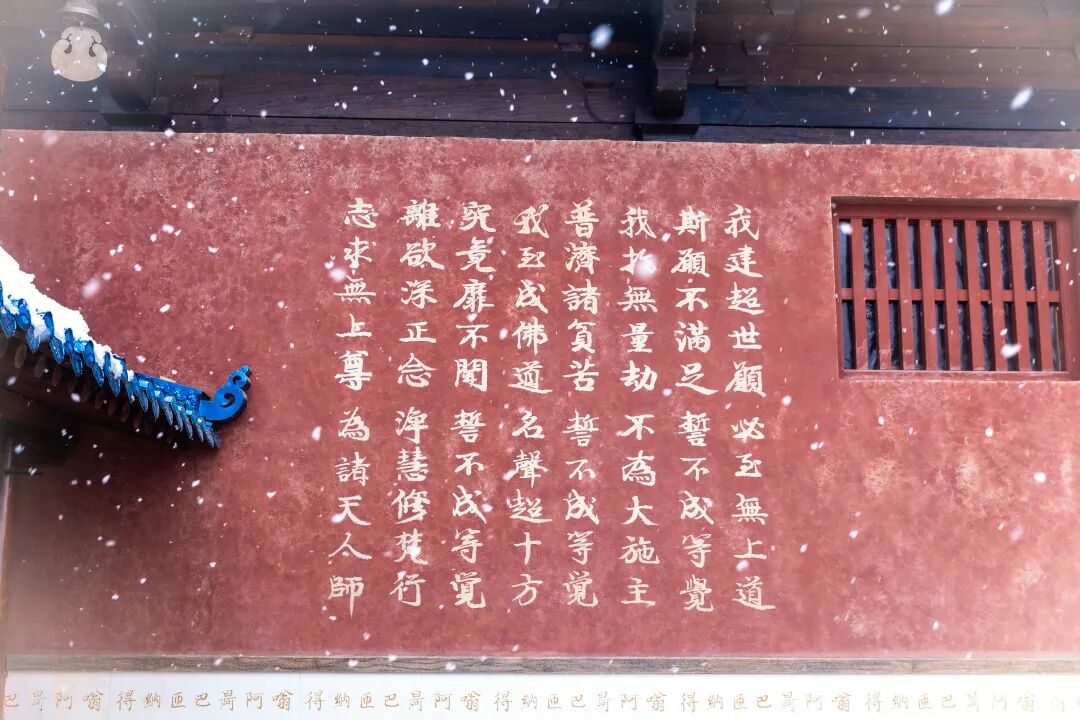 我建超世願 必至無上道
斯願不滿足 誓不成等覺
我於無量劫 不為大施主
普濟諸貧苦 誓不成等覚
我至成佛道 名聲超十方
究竟靡不聞 誓不成等覚
離欲深正念 淨慧修梵行
志求無上尊 為諸天人師
得 嗡阿巴匝納得 嗡阿巴匝納得 嗡阿巴匝納得 嗡阿巴匝納得 嗡阿巴匝納得 嗡阿巴